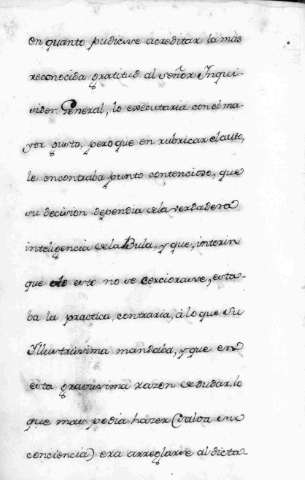 en quanto pudiesse acreditar la mas
reconocida gratitud al señor Inqui-
sidor General, lo executaria con el ma-
yor gusto, pero que en rubricar el auto,
le encontraba punto contencioso, que
su decission dependia de la verdadera
inteligencia de la Bula, y que, interin
que de esto no se cerciorasse, esta-
ba la practica, contraria, à lo que su
Illustrissima mandaba, y que en
esta gravissima razon de dudar, lo
que mas podia házer (salva su
conciencia) era arreglarse al dicta-